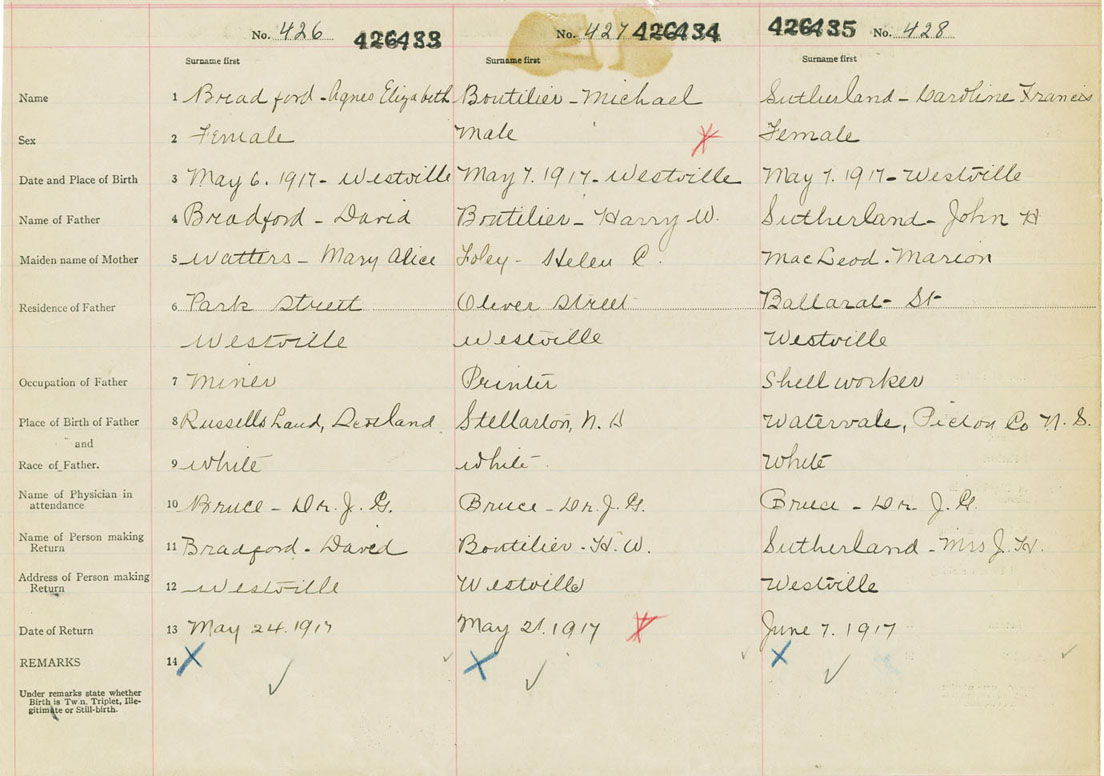 No. 426 426433 No. 427 426434 426435 No. 428
Surname first Surname first Surname first
Name 1 Bradford - Agnes Elizabeth Boutilier - Michael Sutherland - Caroline Francis
Sex 2 Female Male Female
Date and Place of Birth 3 May 6. 1917 - Westville May 7. 1917 - Westville May 7. 1917 - Westville
Name of Father 4 Bradford - David Boutilier - Harry W. Sutherland - John H
Maiden name of Mother 5 Watters - Mary Alice Foley - Helen C. MacLeod - Marion
Residence of Father 6 Park Street Oliver Street Ballarat - St
Westville Westville Westville
Occupation of Father 7 Miner Printer Shell worker
Place of Birth of Father 8 Russells Land, Stellarton, N. S Watervale, Pictou Co N. S.
and
Race of Father. 9 White White. White
Name of Physician in
attendance 10 Bruce - Dr. J. G. Bruce - Dr. J. G. Bruce - Dr. J. G.
Name of Person making
Return 11 Bradford - David Boutilier - H. W. Sutherland - Mrs J. H.
Address of Person making
Return 12 Westville Westville Westville
Date of Return 13 May 24. 1917 May 21. 1917 June 7. 1917
REMARKS 14
Under remarks state whether
Birth is Twin, Triplet, Ille-
gitimate or Still-birth.